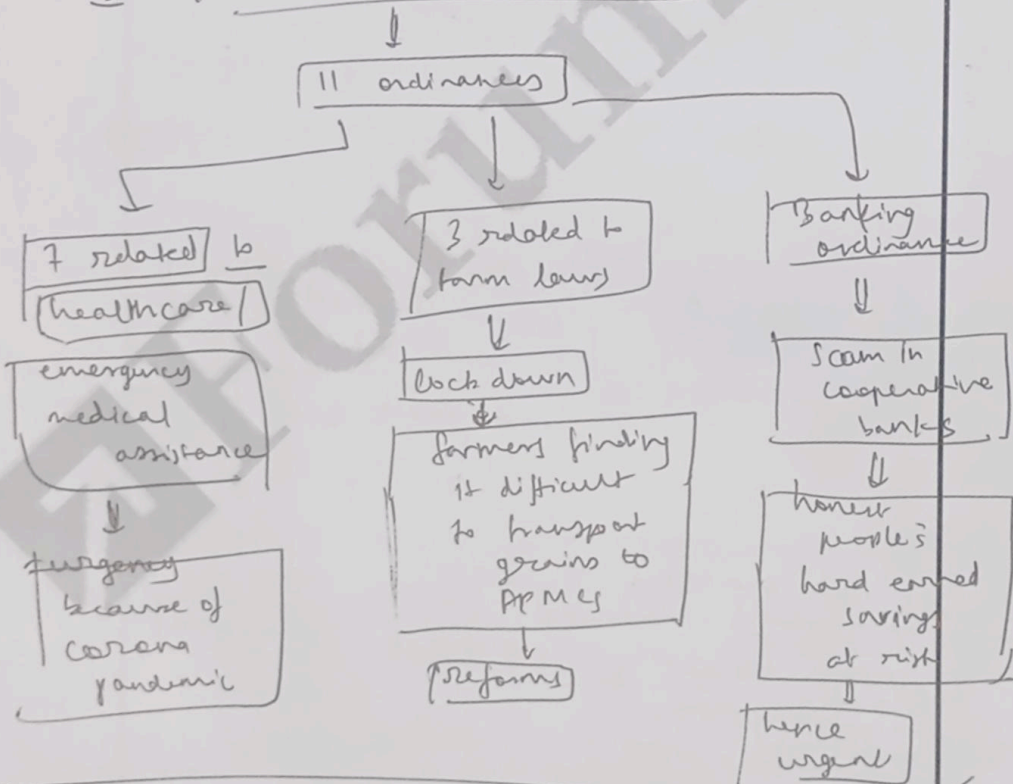 11 ordinances
7 related to
healthcare/
emergency
medical
assistance
urgency
because of
corona
pandemic
3 related to
farm laws
lock down
farmers finding
it difficult
to transport
grains to
APMCs
reforms
Banking
ordinance
Scam in
cooperative
banks
honest
people's
hard earned
savings
at risk
hence
urgent
Forum